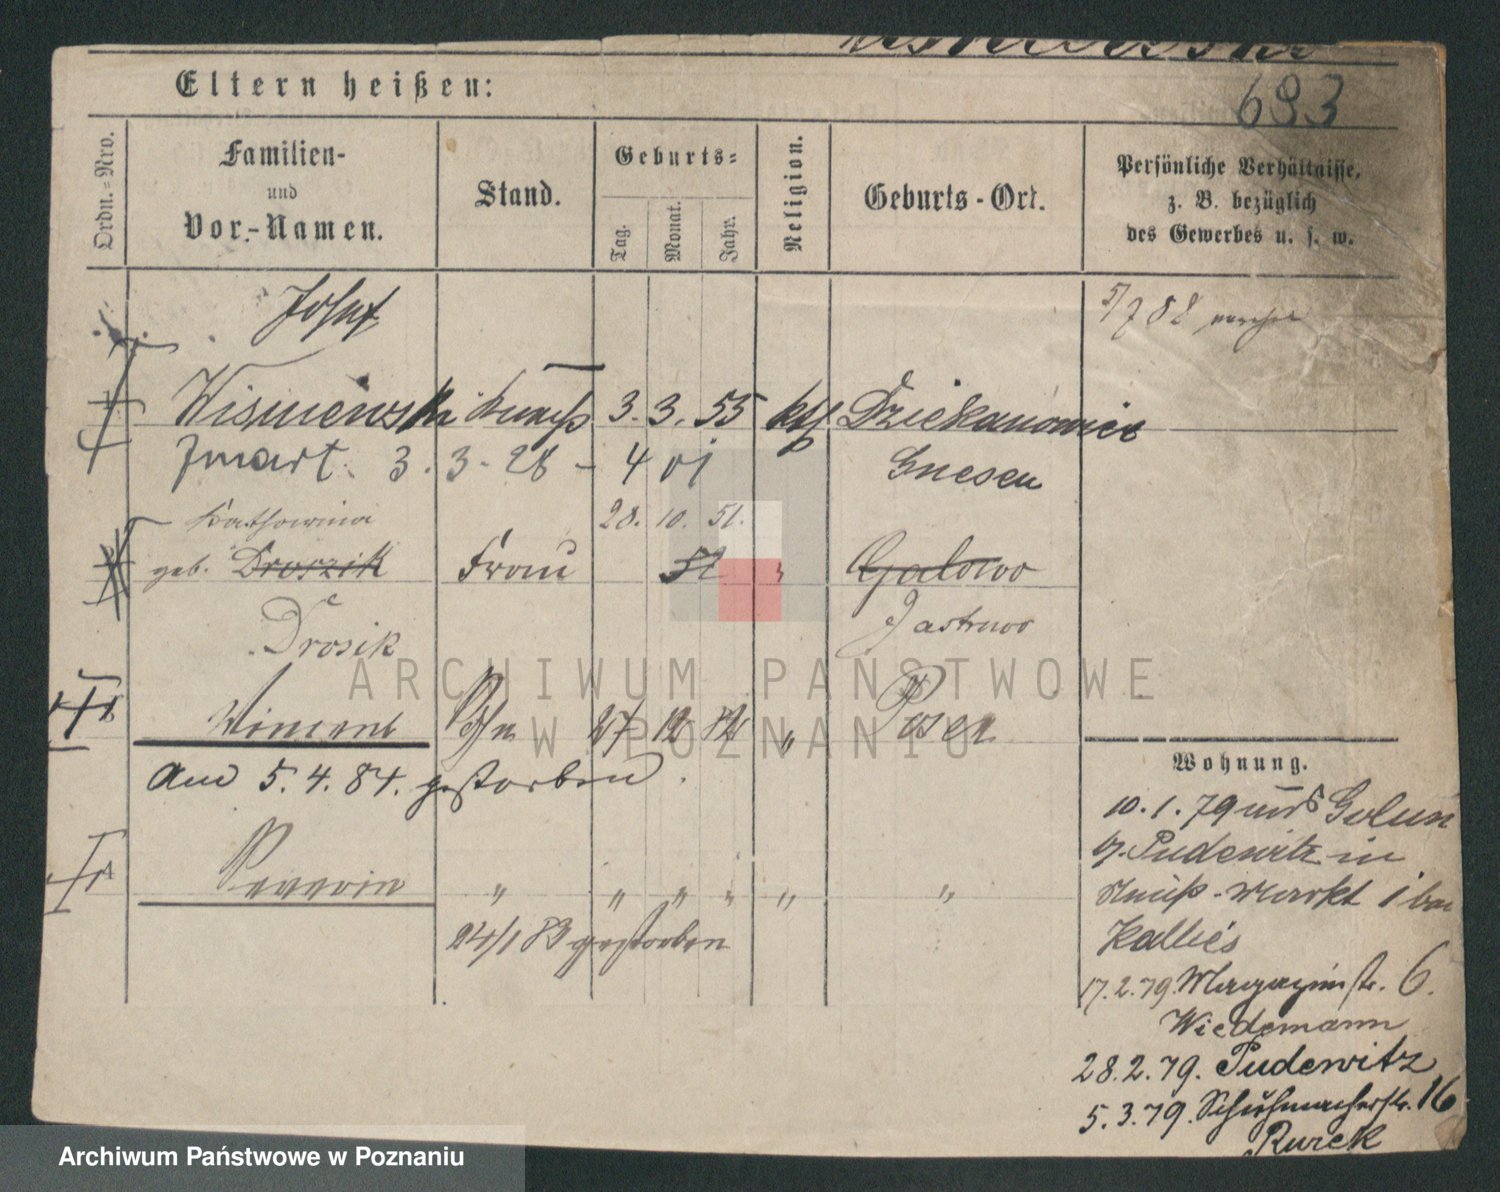 693
Eltern heißen:
Ordn.-Nro.
Familien-
und
Vor.-Namen.
Stand.
Geburts-
Tag.
Monat.
Jahr.
Religion.
Geburts-Ort.
Persönliche Verhältnisse,
z. B. bezüglich
des Gewerbes u. s. w.
Josef
5/7 88
Wisniewski 3. 3. 55 kth Dziekanowice
Zmart. 3. 3. 28 - 4 01 Gnesen
Katharina 28. 10. 51.
geb. Droszik Frau 52 " Galowo
Drosik Jastrowo
Vincent Sohn 27 12 82 " Posen
Am 5. 4. 84. gestorben.
Severin " " " " " "
24/1 83 gestorben
Wohnung.
10. 1. 79 Golun
b. Pudewitz in
Markt 1 bei
Kallies
17. 2. 79. Magazinstr. 6.
Wiedemann
28. 2. 79. Pudewitz
5. 3. 79. Schuhmacherstr. 16
Rurek
ARCHIWUM PAŃSTWOWE
W POZNANIU
Archiwum Państwowe w Poznaniu